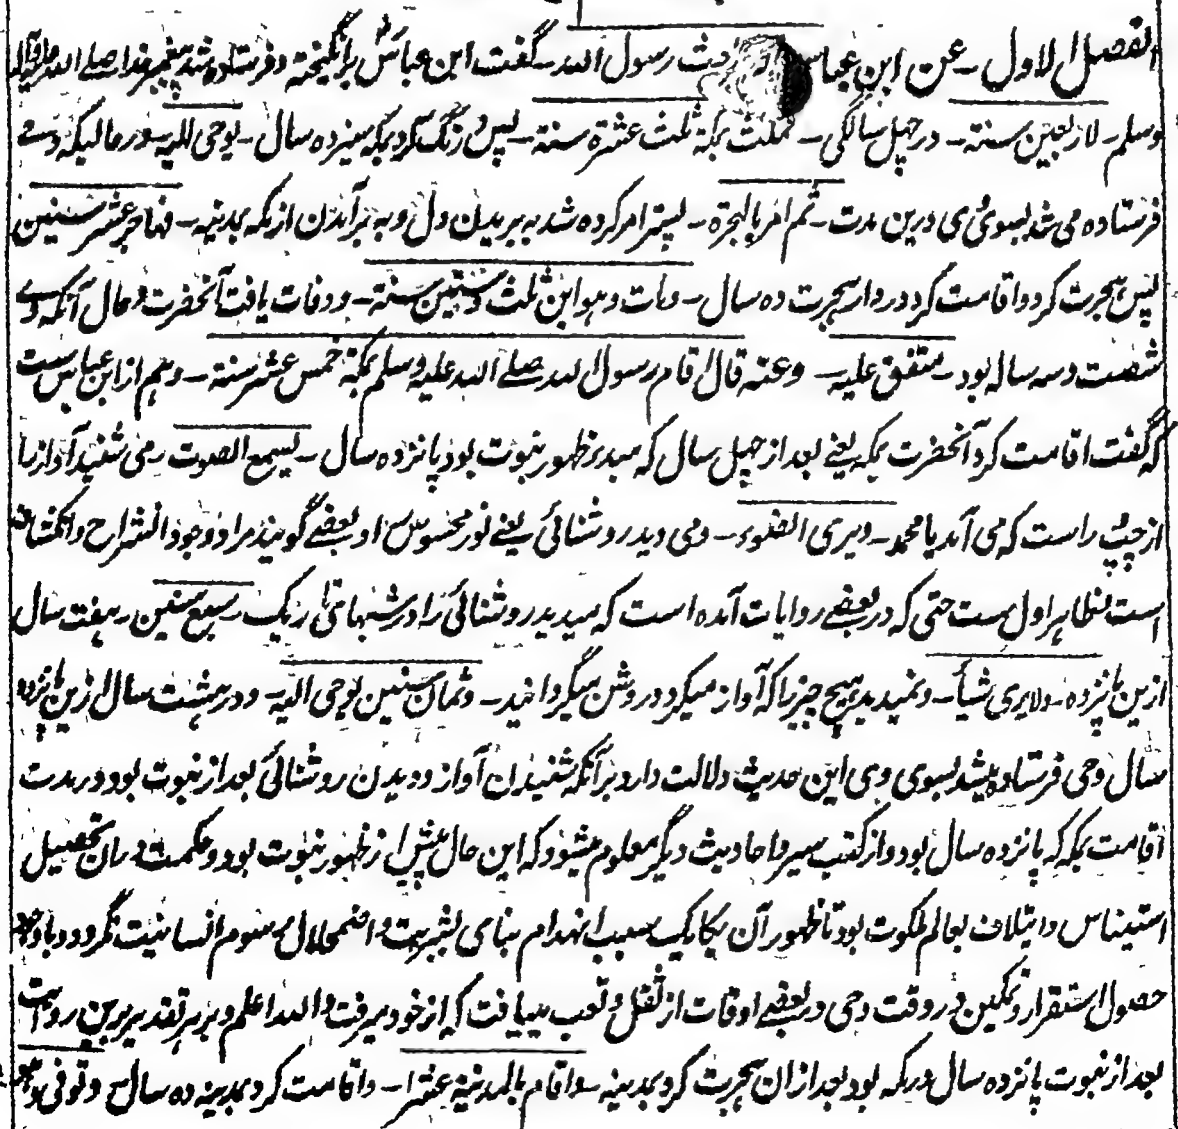 الفصل الاول ـ عن ابن عباس رسول الله ـ گفت ابن عباس برانگیخته و فرستاده شد پیغمبر خدا صلے الله علیه وآله
وسلم ـ لاربعین سنة ـ در چهل سالگی ـ فمکث بمکة ثلث عشرة سنة ـ پس درنگ کرد بمکه سیزده سال ـ یوحی الیه ـ در حالیکه وحی
فرستاده می شد بسوی وی درین مدت ـ ثم امر بالهجرة ـ پستر امر کرده شد به بریدن دل و به برآمدن از مکه بمدینه ـ فهاجر عشر سنین
پس هجرت کرد و اقامت کرد در دار هجرت ده سال ـ ومات وهو ابن ثلث وستین سنة ـ و وفات یافت آنحضرت و حال آنکه وے
شصت و سه ساله بود ـ متفق علیه ـ وعنه قال اقام رسول الله صلے الله علیه وسلم بمکة خمس عشر سنة ـ و هم از ابن عباس ست
که گفت اقامت کرد آنحضرت بمکه یعنے بعد از چهل سال که مبدء ظهور نبوت بود پانزده سال ـ یسمع الصوت ـ می شنید آواز را
از چپ و راست که می آمد یا محمد ـ ویری الضوء ـ و می دید روشنائی یعنے نور محسوس را و بعضے گویند مراد وجود انشراح و انکشاف
است و ظاهر اول ست حتی که در بعضے روایات آمده است که میدید روشنائی را در شبهای تاریک ـ سبع سنین ـ هفت سال
ازین پانزده ـ ولایری شیأ ـ و نمیدید هیچ چیز را که آواز میکرد و روشن میگردانید ـ وثمان سنین یوحی الیه ـ و در هشت سال ازین پانزده
سال وحی فرستاده میشد بسوی وی این حدیث دلالت دارد بر آنکه شنیدن آواز و دیدن روشنائی بعد از نبوت بود در مدت
اقامت بمکه که پانزده سال بود و از کتب سیر و احادیث دیگر معلوم میشود که این حال پیش از ظهور نبوت بود و حکمت دران تحصیل
استیناس و ایتلاف بعالم ملکوت بود تا ظهور آن یکایک سبب انهدام بنای بشریت و اضمحلال رسوم انسانیت نگردد و باوجود
حصول استقرار و تمکین در وقت وحی در بعضے اوقات از ثقل و تعب مییافت که از خود میرفت والله اعلم و بر هر تقدیر برین روایت
بعد از نبوت پانزده سال در مکه بود بعد ازان هجرت کرد بمدینه ـ واقام بالمدینة عشرا ـ و اقامت کرد بمدینه ده سال وتوفی وهو